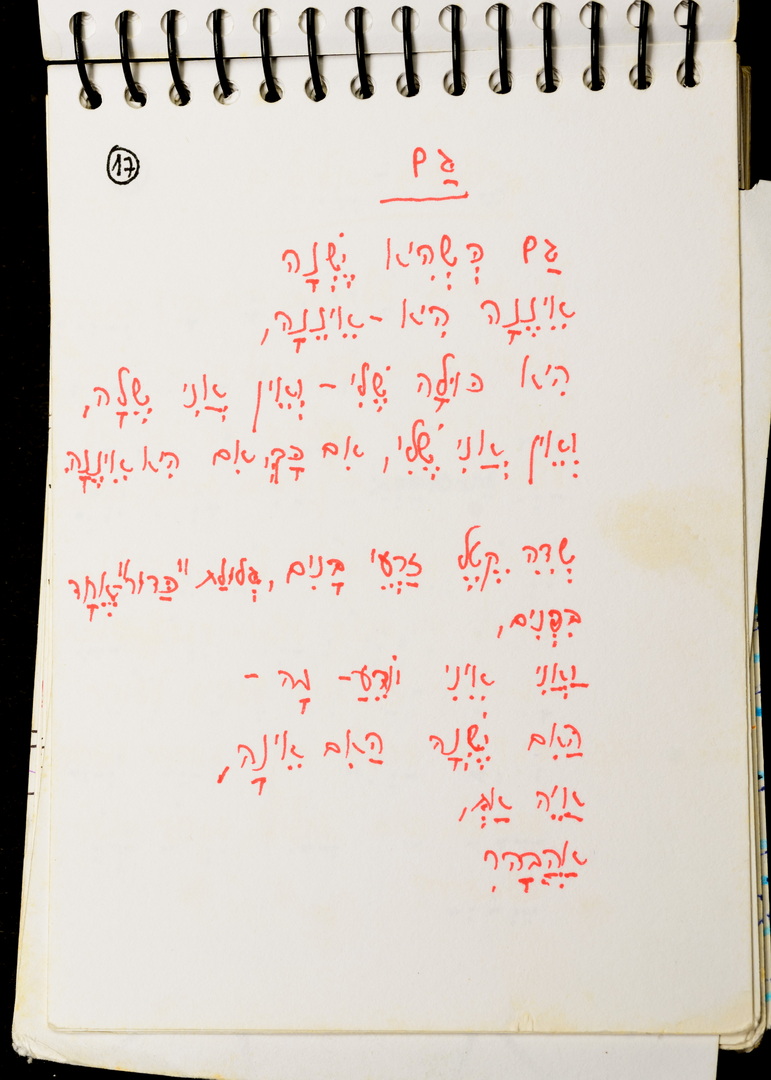 17
גַם
גַם כְּשֶׁהִיא יֶשְׁנָהּ
אֵינֶנָּה הִיא - אֵינֶנָּה,
הִיא כּוּלָהּ שֶׁלִי - וְאֵין אֲנִי שֶׁלָהּ,
וְאֵין אֲנִי שֶׁלִי, אִם כָּךְ, אִם הִיא אֵינֶנָּה.
שְׂדֵה קֶטֶל זַרְעֵי בָּנִים, גְלוּלַת "כַּדוּר" אֶחָד
בִּפְנִים,
וַאֲנִי אֵינִי יוֹדֵעַ - מָה -
הַאִם יֶשְׁנָהּ הַאִם אֵינָהּ,
אַיֵה אַתְּ,